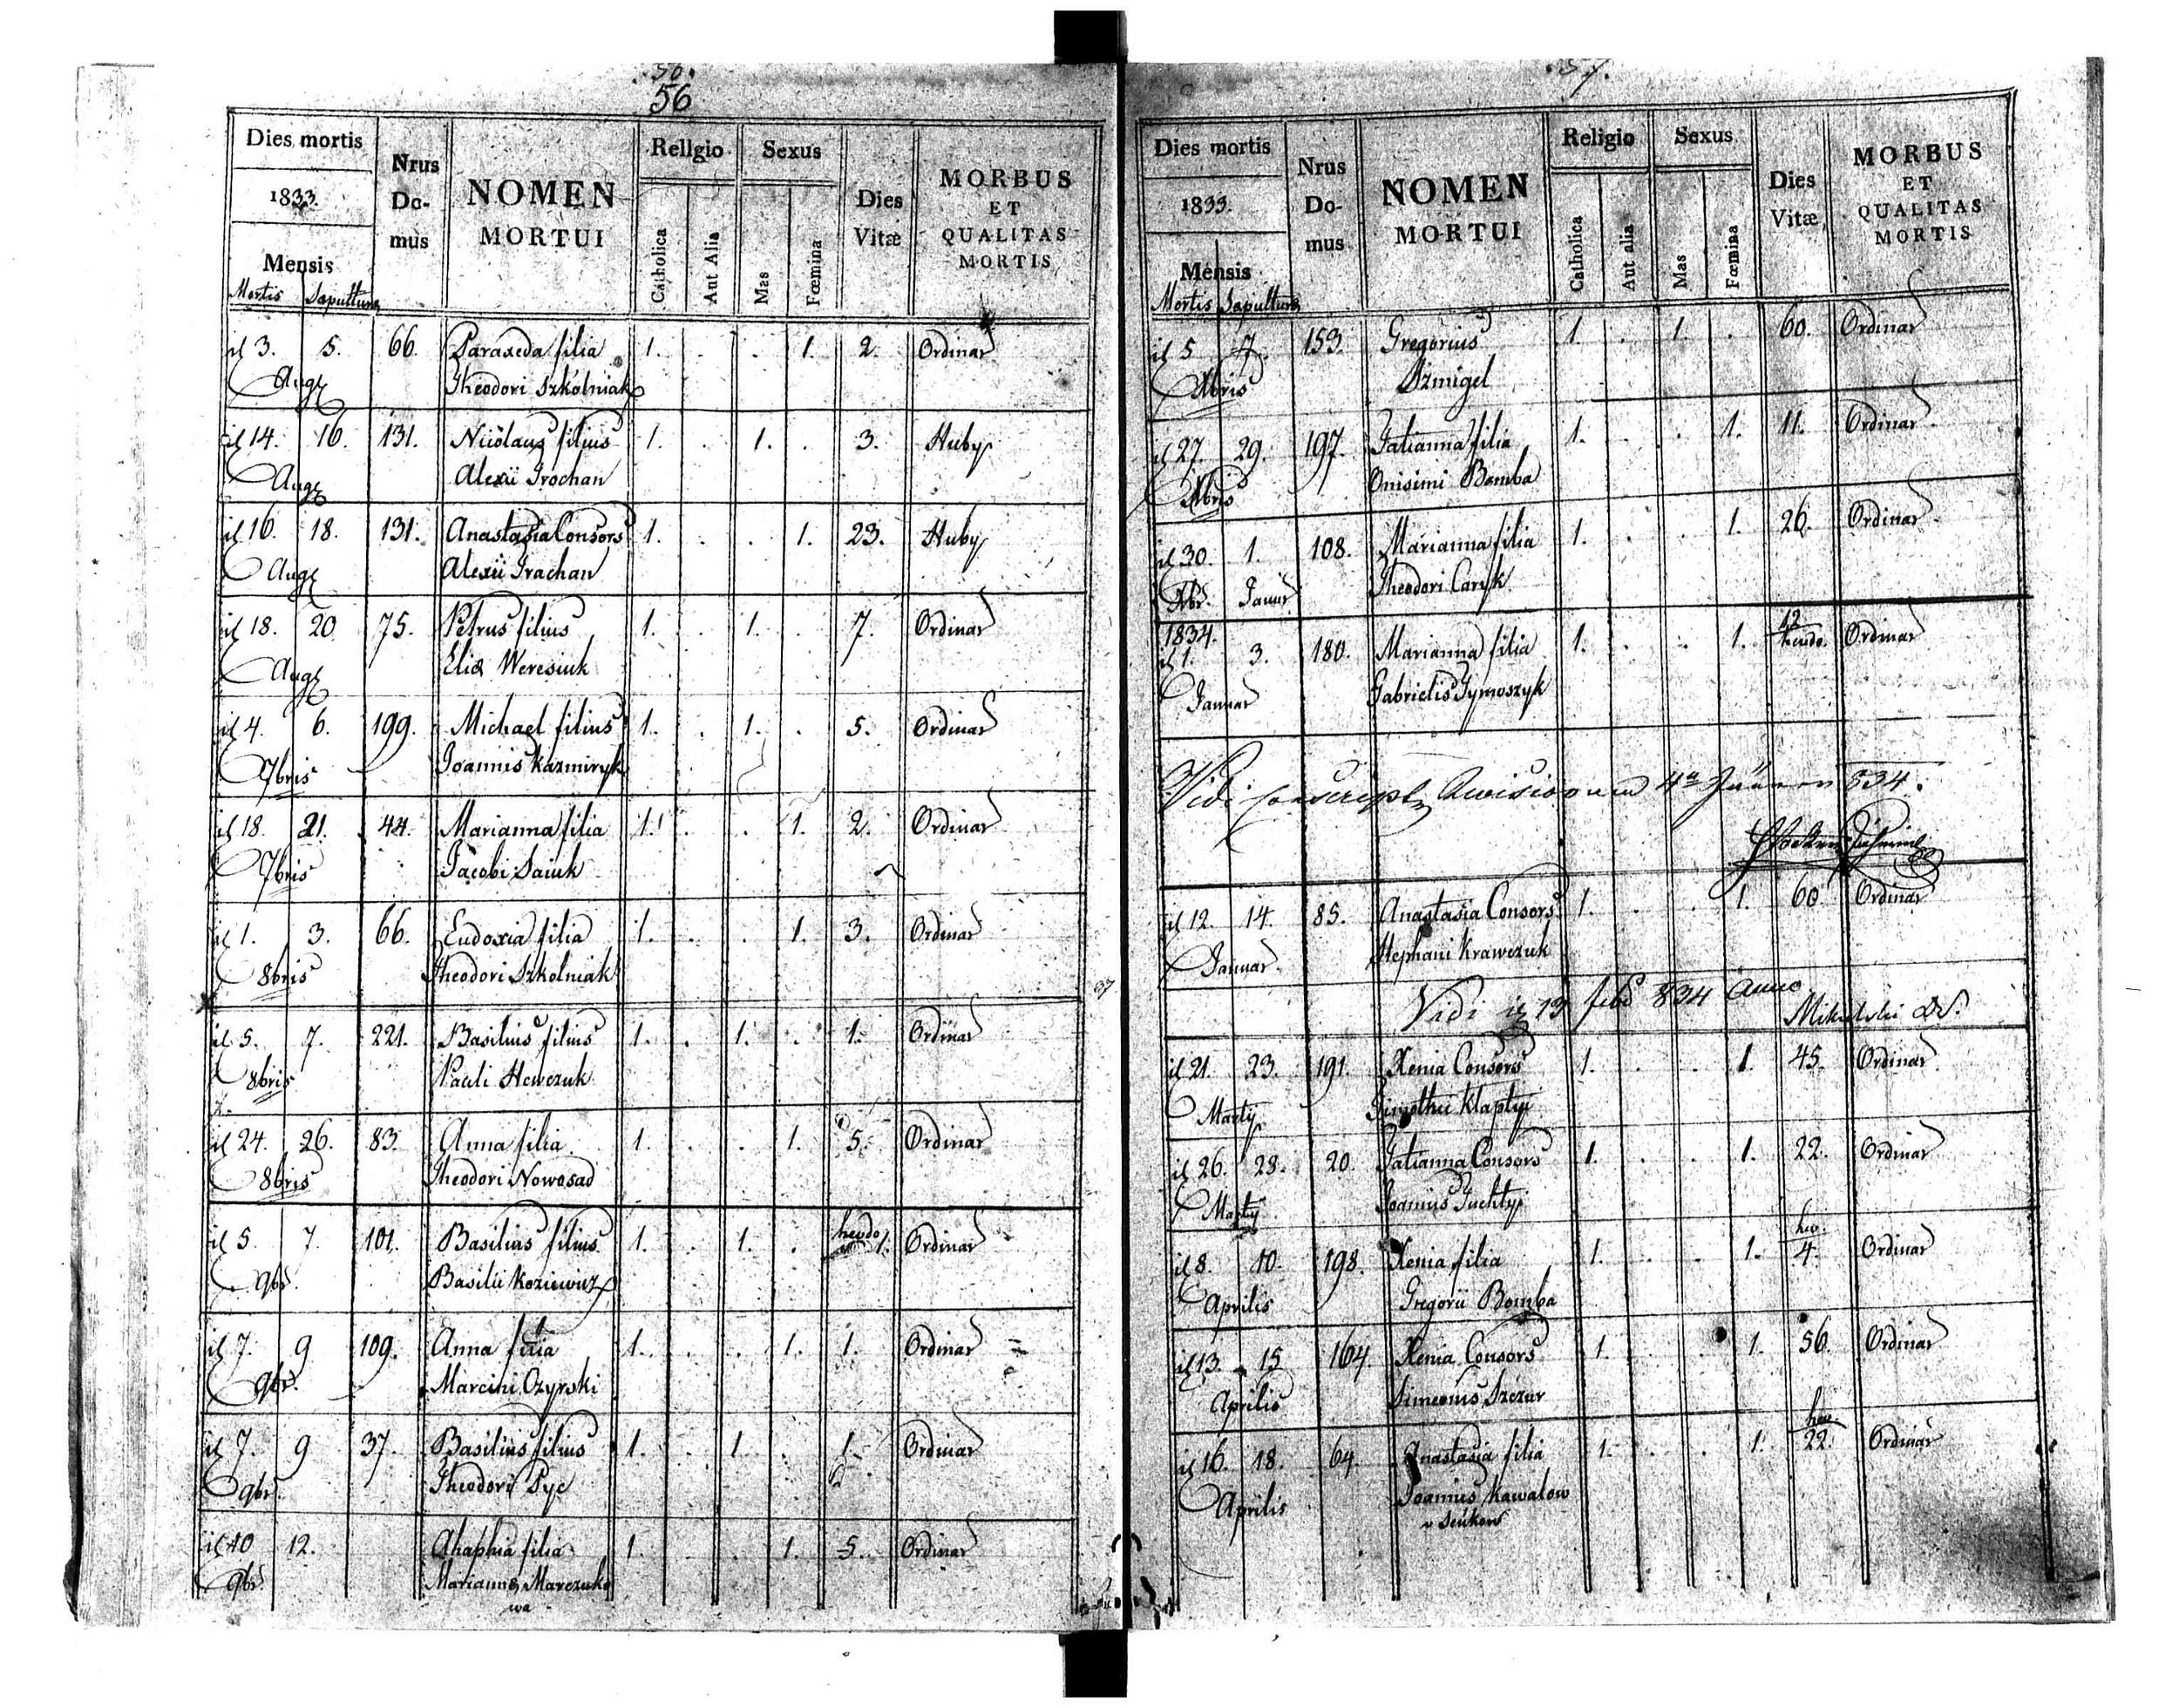 56
Dies mortis
1833.
Mensis
Mortis Sepulturæ
Nrus Do- mus
NOMEN MORTUI
Religio
Catholica
Aut Alia
Sexus
Mas
Fœmina
Dies Vitæ
MORBUS ET QUALITAS MORTIS
3. 5. 66. Paraxeda filia 1. . . 1. 2. Ordinar
Aug Theodori Szkolniak
14. 16. 131. Nicolaus filius 1. . 1. . 3. Huby
Aug Alexii Trochan
16. 18. 131. Anastasia Consors 1. . . 1. 23. Huby
Aug Alexii Trachan
18. 20 75. Petrus filius 1. . 1. . 7. Ordinar
Aug Eliæ Weresiuk
4. 6. 199. Michael filius 1. . 1. . 5. Ordinar
7bris Joannis Kazmiryk
18. 21. 44. Marianna filia 1. . . 1. 2. Ordinar
7bris Jacobi Saiuk
1. 3. 66. Eudoxia filia 1. . . 1. 3. Ordinar
8bris Theodori Szkolniak
5. 7. 221. Basilius filius 1. . 1. . 1. Ordinar
8bris Pauli Hewczuk
24. 26. 83. Anna filia 1. . . 1. 5. Ordinar
8bris Theodori Nowosad
5. 7. 101. Basilius filius 1. . 1. . 1. Ordinar
9br Basilii Koziewicz
7. 9 109. Anna filia 1. . . 1. 1. Ordinar
9br. Marcini Ozyrski
7. 9 37. Basilius filius 1. . 1. . 1. Ordinar
9br. Theodori Pyc
10 12. Ahaphia filia 1. . . 1. 5. Ordinar
9br. Mariannæ Marczuko
wa
57.
Dies mortis
1833.
Mensis
Mortis Sepulturæ
Nrus Do- mus
NOMEN MORTUI
Religio
Catholica
Aut alia
Sexus
Mas
Fœmina
Dies Vitæ
MORBUS ET QUALITAS MORTIS
5 7. 153. Gregorius 1. . 1. . 60. Ordinar
Xbris Szmigel
27. 29. 197. Tatianna filia 1. . . 1. 11. Ordinar
Xbris Onisimi Bomba
30. 1. 108. Marianna filia 1. . . 1. 26. Ordinar
Xbr. Januar Theodori Caryk
1834.
1. 3. 180. Marianna filia 1. . . 1. 12 Ordinar
Januar Gabrielis Tymoszyk
Vidi 4a 834.
12. 14. 85. Anastasia Consors 1. . . 1. 60 Ordinar
Januar Stephani Krawczuk
Vidi 13 feb 834 anno
21. 23. 191. Xenia Consors 1. . . 1. 45. Ordinar
Marty Timothei Klaptyi
26. 28. 20. Tatianna Consors 1. . . 1. 22. Ordinar
Marty Joannis Juchtyi
8. 10. 198. Xenia filia 1. . . 1. 4. Ordinar
Aprilis Gregorii Bomba
13. 15 164 Xenia Consors 1. . . 1. 56. Ordinar
Aprilis Simeonis Szczur
16. 18. 64. Anastasia filia 1. . . 1. 22. Ordinar
Aprilis Joannis Kawalow